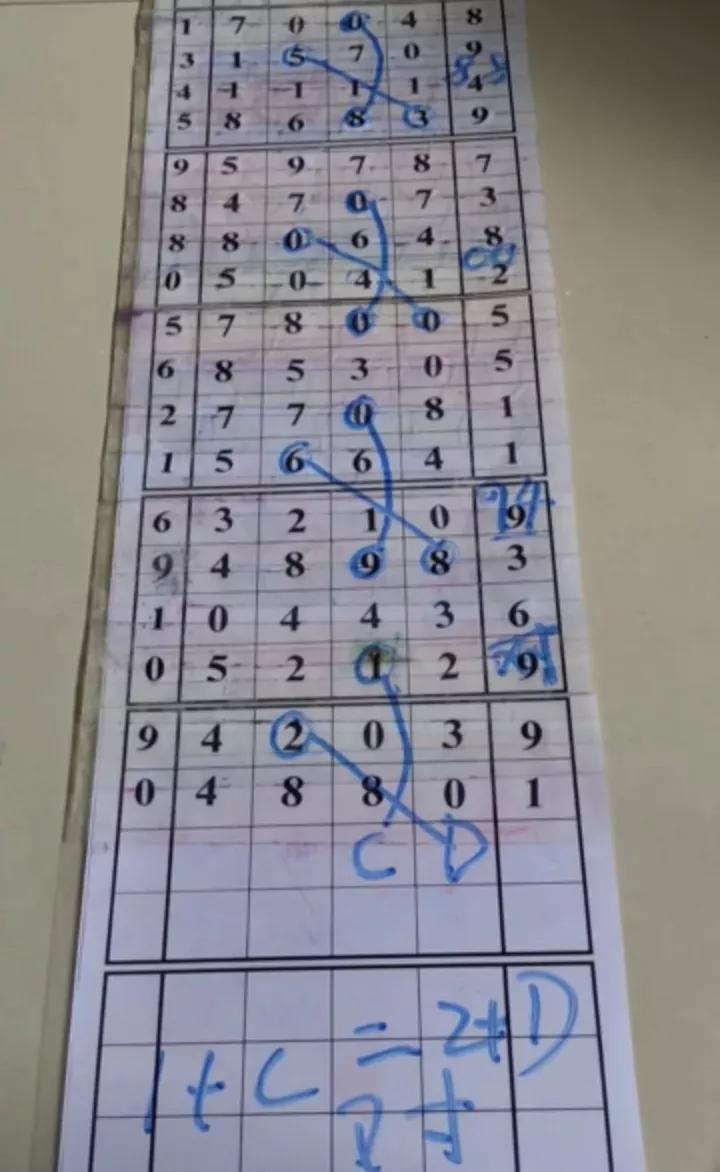 1 7 0 0 4 8
3 1 5 7 0 9
4 1 1 1 1 4
5 8 6 8 3 9
9 5 9 7 8 7
8 4 7 0 7 3
8 8 0 6 4 8
0 5 0 4 1 2
5 7 8 0 0 5
6 8 5 3 0 5
2 7 7 0 8 1
1 5 6 6 4 1
6 3 2 1 0 9
9 4 8 9 8 3
1 0 4 4 3 6
0 5 2 1 2 9
9 4 2 0 3 9
0 4 8 8 0 1
C D
1+C=2+D